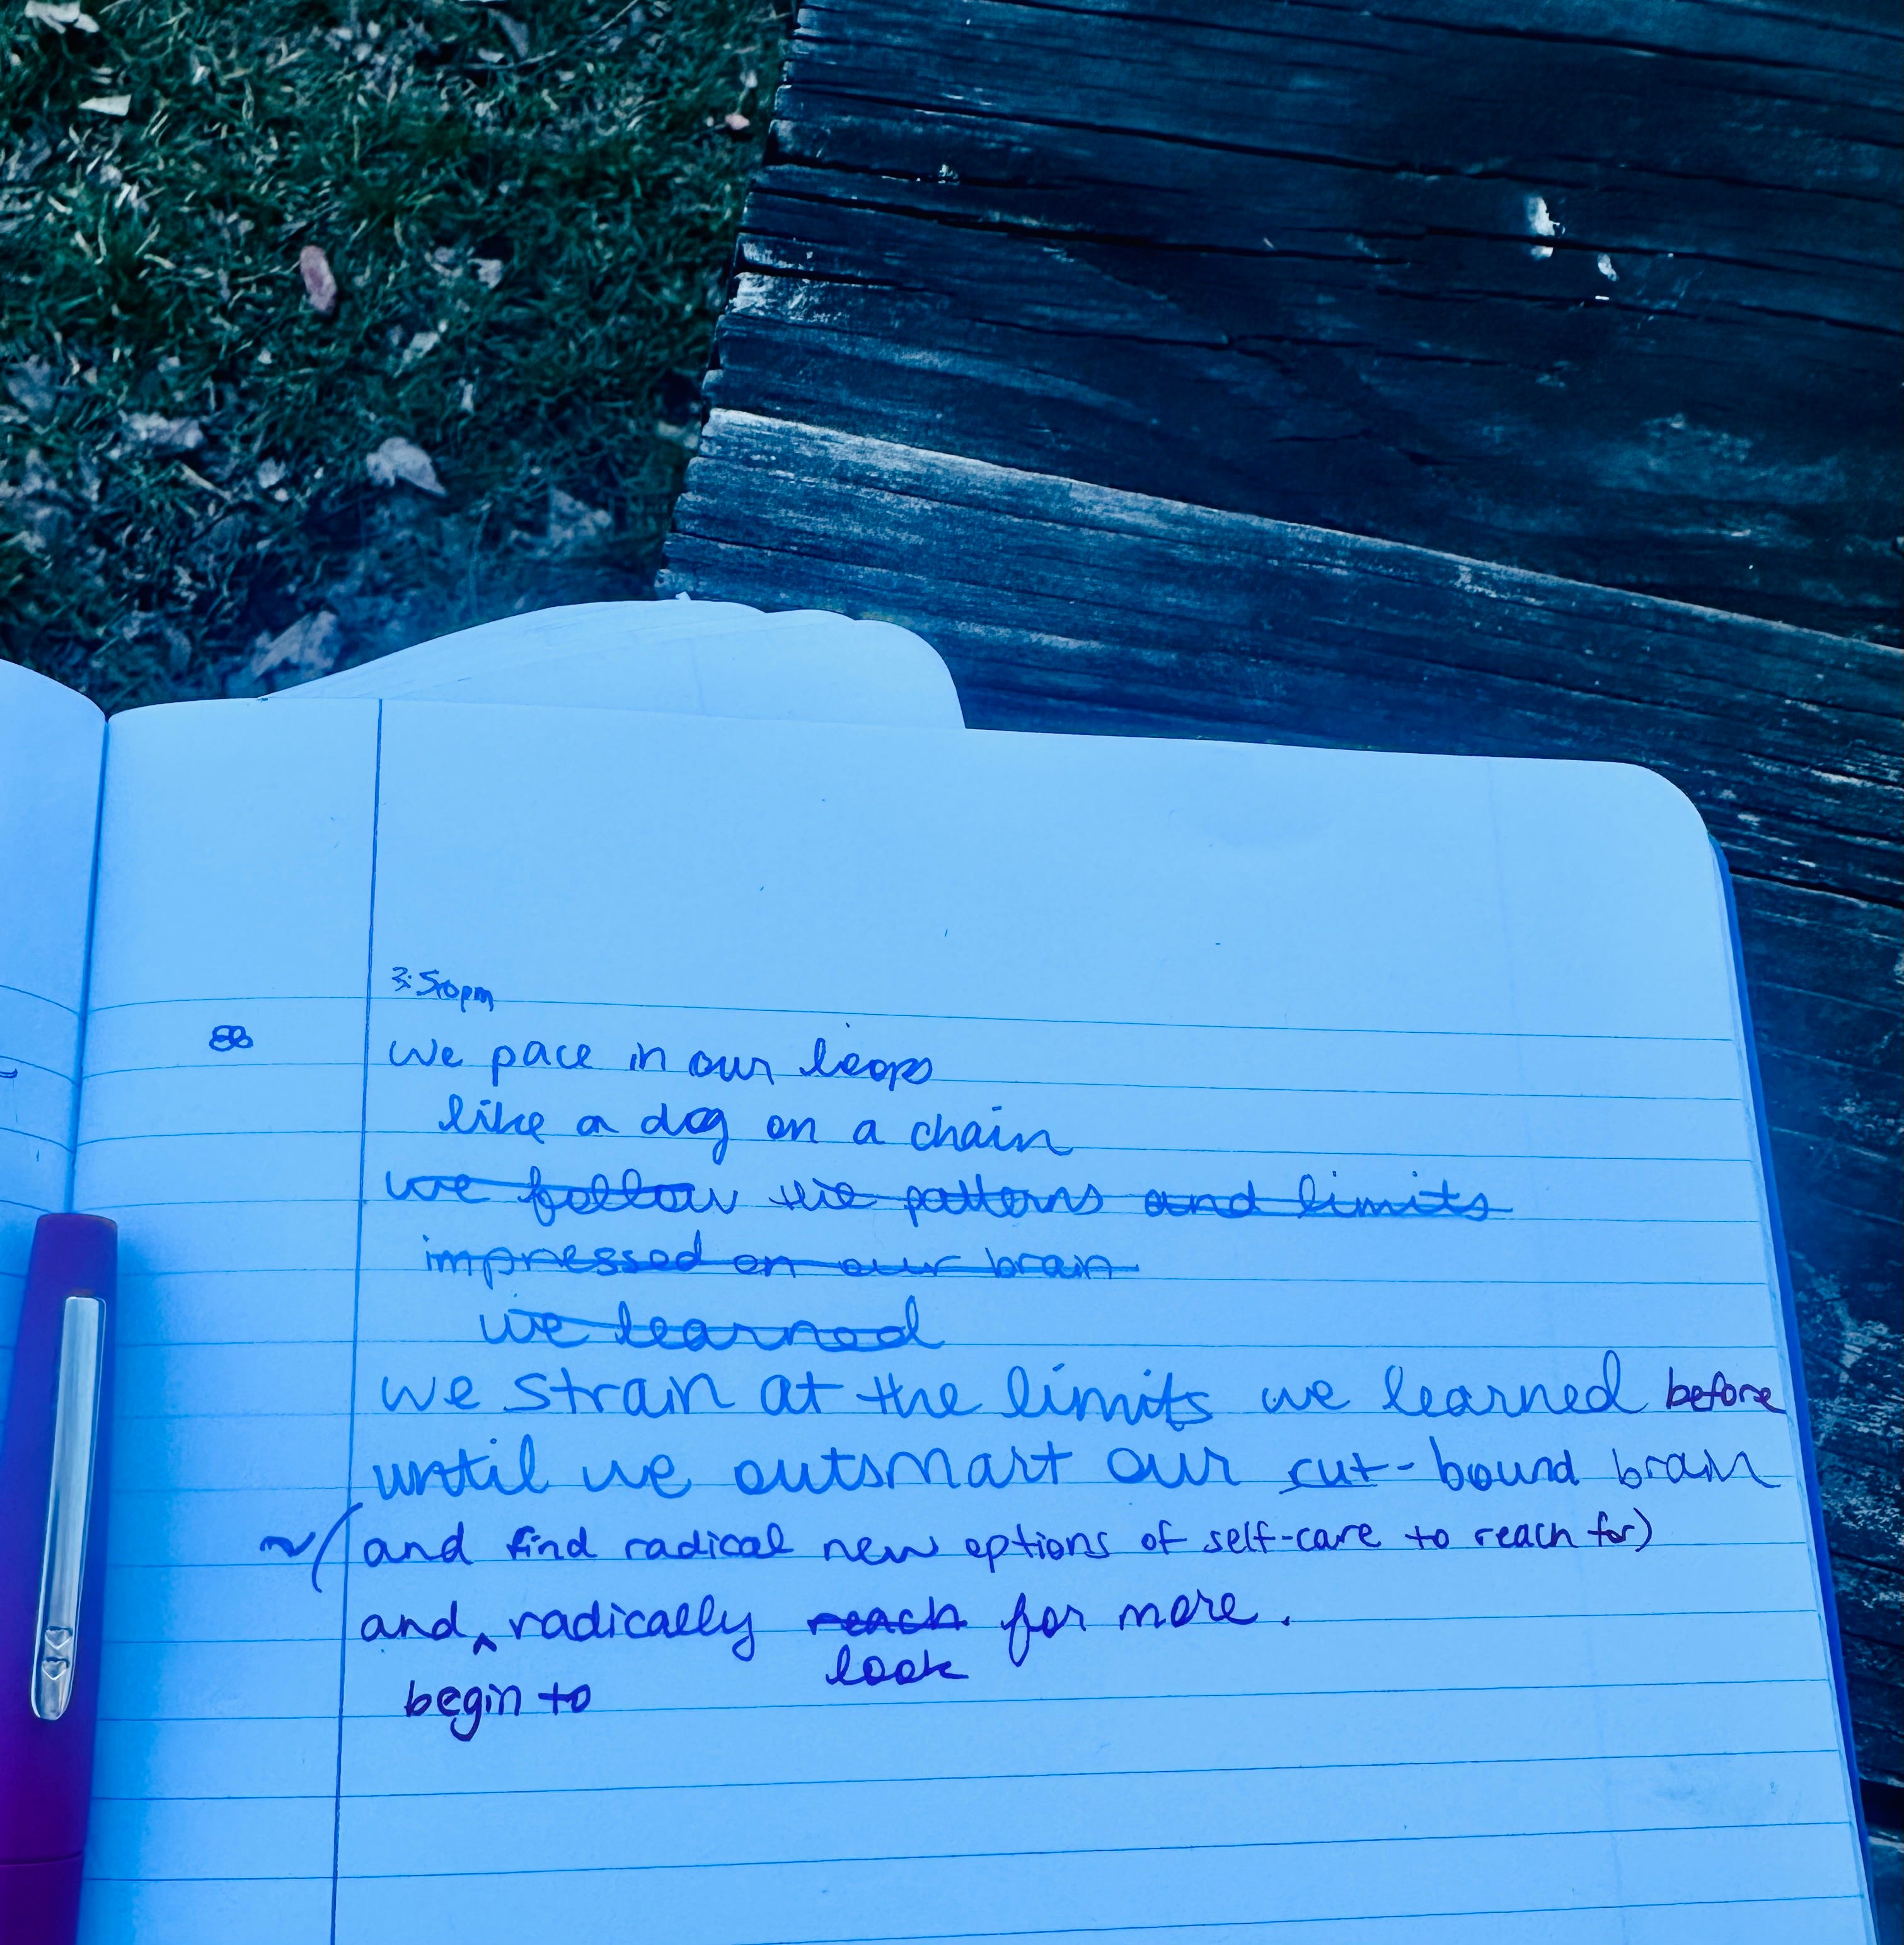 3:50pm
88
we pace in our loops
like a dog on a chain
we follow the patterns and limits
impressed on our brain
we learned
we strain at the limits we learned before
until we outsmart our rut-bound brain
~(and find radical new options of self-care to reach for)
and ^ radically reach for more.
look
begin to